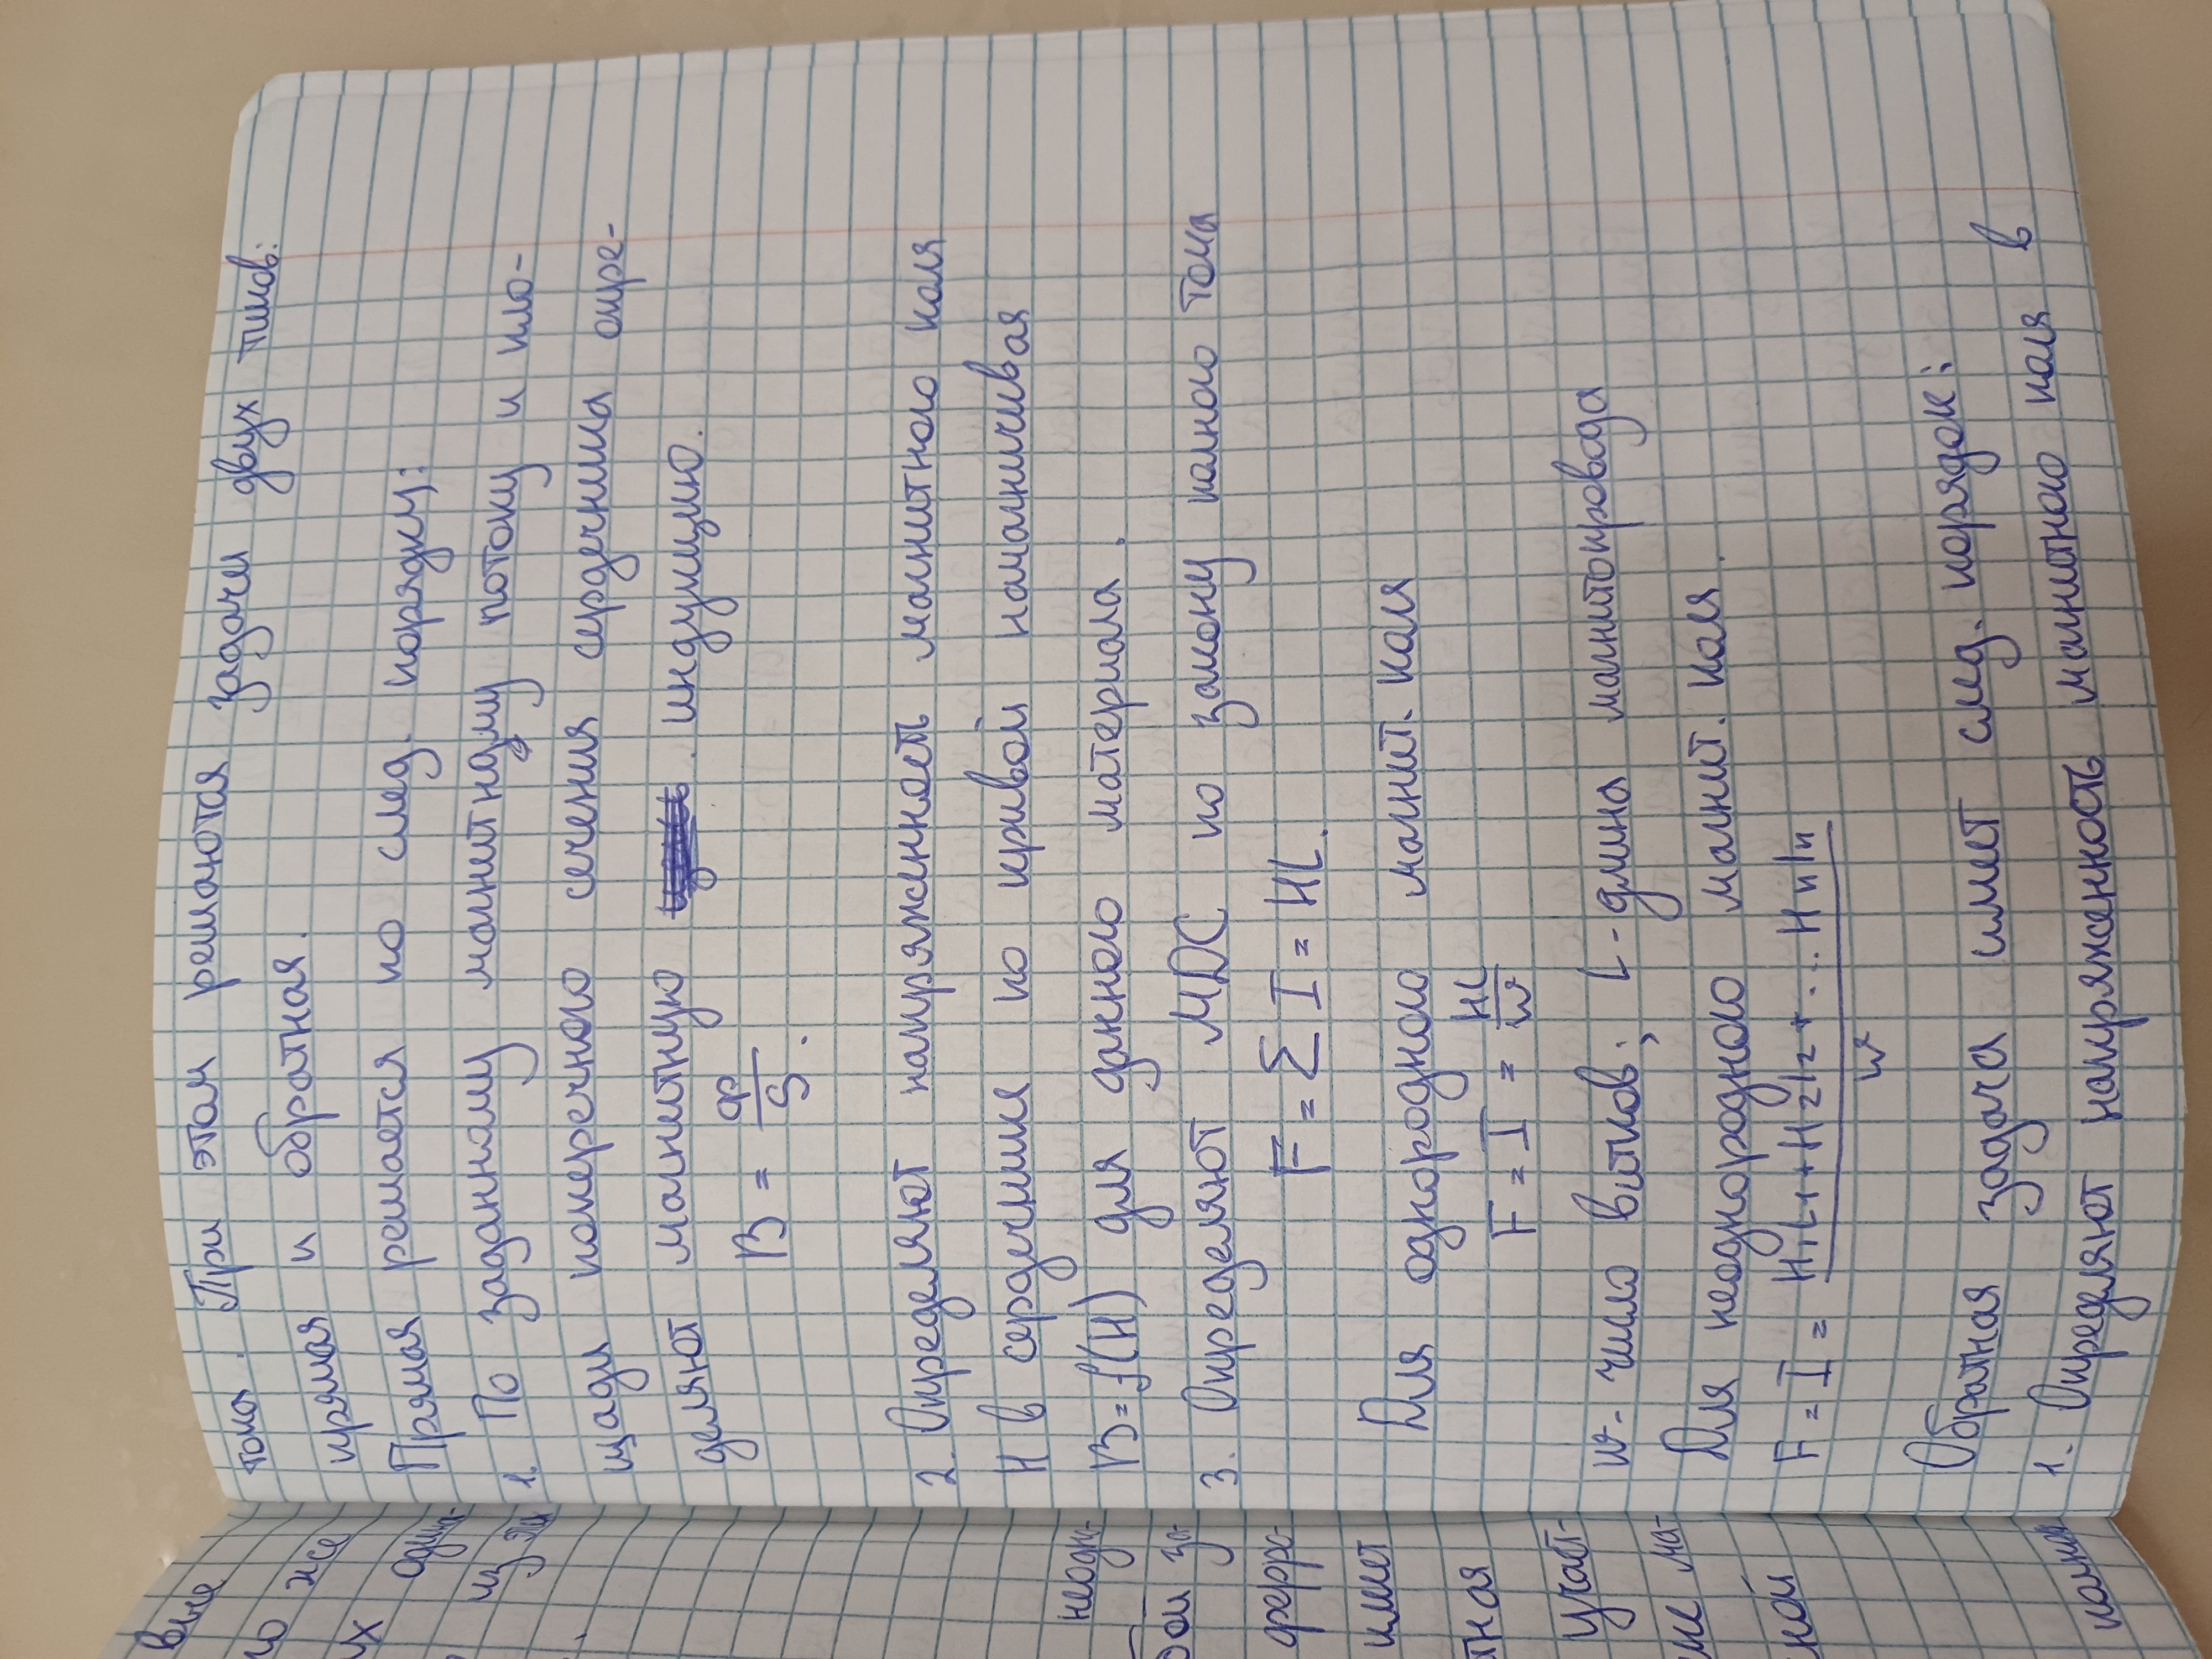 тока. При этом решаются задачи двух типов:
прямая и обратная.
Прямая решается по след. порядку:
1. По заданному магнитному потоку и пло-
щади поперечного сечения сердечника опре-
деляют магнитную индукцию.
B = Ф/S.
2. Определяют напряженность магнитного поля
H в сердечнике по кривой намагничивая
B = f(H) для данного материала.
3. Определяют МДС по закону полного тока
F = Σ I = HL.
Для однородного магнит. поля
F = I = HL/w
w - число витков; L - длина магнитопровода
Для неоднородного магнит. поля.
F = I = H₁L₁ + H₂l₂ + ... Hₙlₙ / w
Обратная задача имеет след. порядок:
1. Определяют напряженность магнитного поля в
вне
о же
х одина-
из
неодн-
ферро-
имеет
тная
участ-
ной